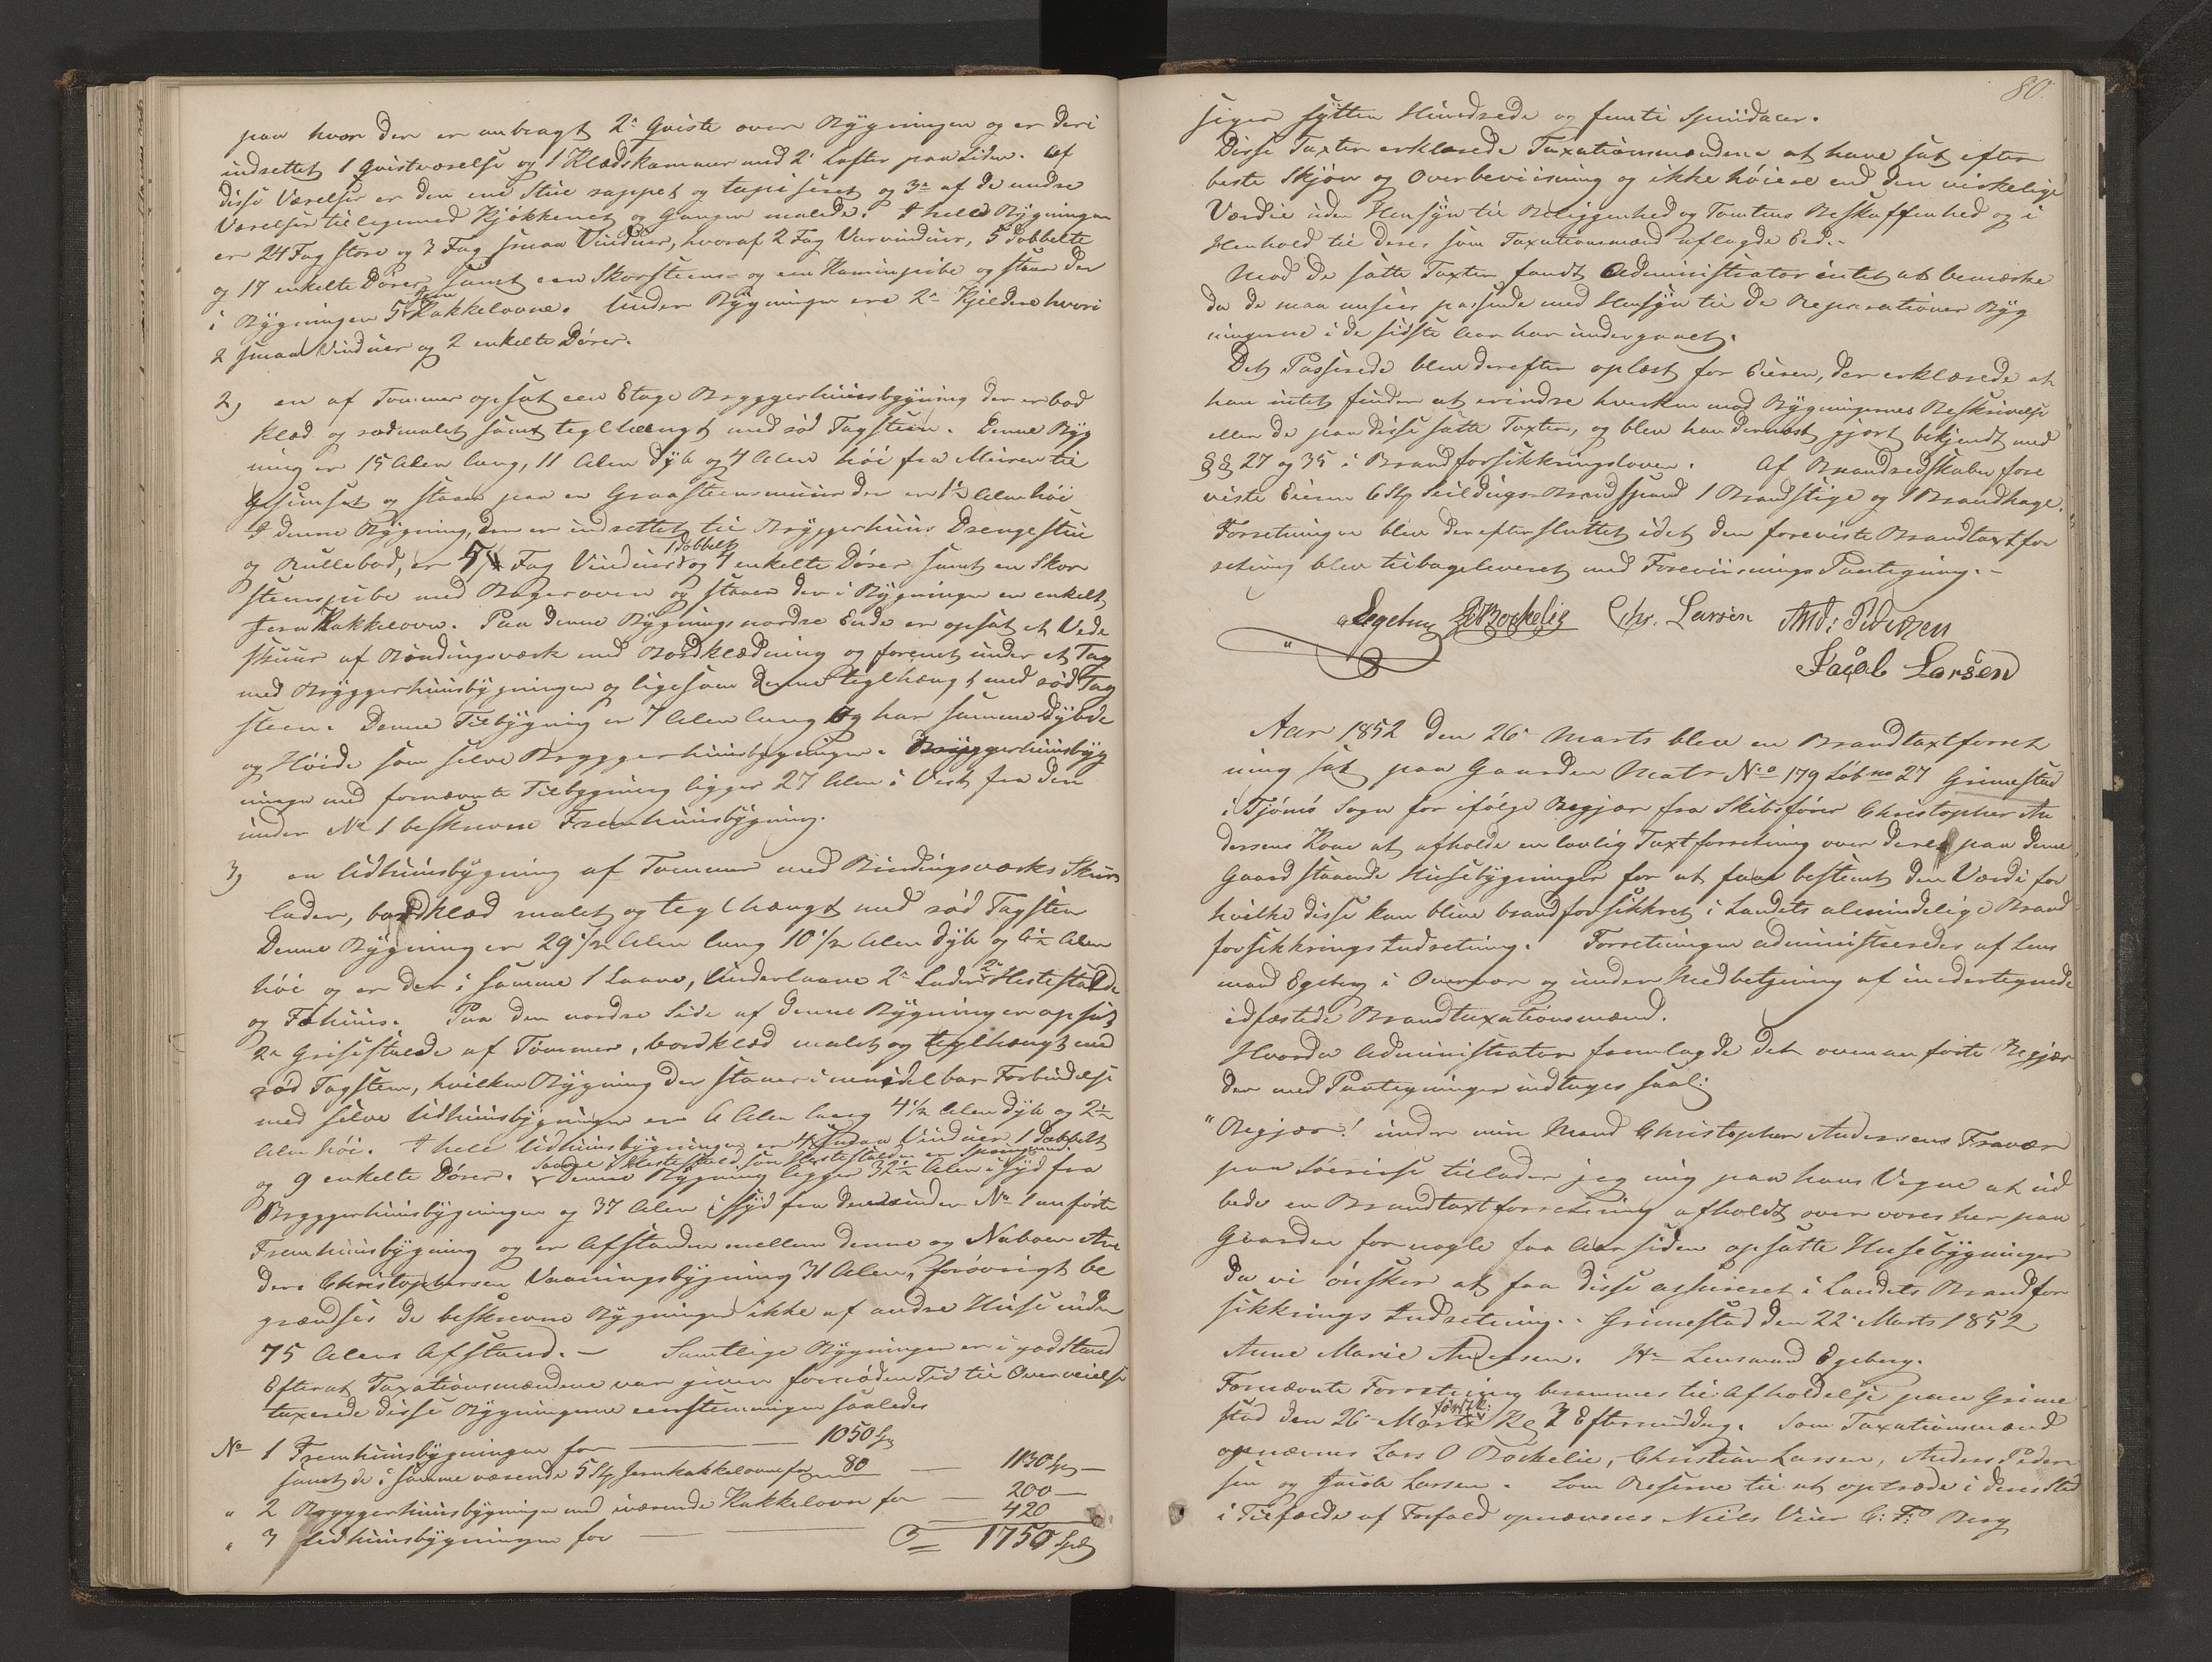 paa hvor der er anbragt 2de Qviste over Bygningen og er deri
indrettet 1 Qvistværelse og 1 Klædskammer med 2de Lofter paa Siden. Af
disse Værelser er den ene Stue rappet og tapiseret og 3de af de andre
Værelser tilligemed Kjøkkenet og Gangen malede. I hele Bygningen
er 24 Fag store og 3 Fag smaa Vinduer, hvoraf 2 Fag Varvinduer, 5 dobbelte
og 17 enkelte Dører samt een Skorsteens- og een Kaminpibe og staar der
i Bygningen 5 Jern Kakkelovne. Under Bygningen ere 2de Kjeldere hvori
2 smaa Vinduer og 2 enkelte Dører.
2, en af Tømmer opsat een Etage Bryggerhuusbygning der er bord
klæd og rødmalet samt teglhængt med rød Tagsteen. Denne Byg
ning er 15 Alen lang, 11 Alen dyb og 4 Alen høi fra Muren til
Gesimset og staar paa en Graasteensmuur der er 1½ Alen høi
I denne Bygning, der er indrettet til Bryggerhuus Drengestue
og Rullebod, er 5 Fag Vinduer 1 dobbelt og 4 enkelte Dører samt en Skor
steenspibe med Bagerovn og staaer der i Bygningen en enkelt
Jern Kakkelovn. Paa denne Bygnings nordre Ende er opsat et Vede
skuur af Bindingsværk med Bordklædning og forenet under et Tag
med Bryggerhuusbygningen og ligesom denne teglhængt med rød Tag
steen. Denne Tilbygning er 7 Alen lang og har samme Dybde
og Høide som selve Bryggerhuusbygningen. Bryggerhuusbyg
ningen med fornævnte Tilbygning ligger 27 Alen i Vest fra den
under No 1 beskrevne Fremhuusbygning.
3, en Udhuusbygning af Tømmer med Bindingsværks Skur
lader, bordklæd malet og teglhængt med rød Tagsteen
Denne Bygning er 29½ Alen lang 10½ Alen dyb og 6½ Alen
høi og er der i samme 1 Laave, Underlaave 2de Lader 2de Hestestalde
og Fæhuus. Paa den nordre Side af denne Bygning er opsat
2de Grisestalde af Tømmer, bordklæd malet og teglhængt med
rød Tagsteen, hvilken Bygning der staaer i umidelbar Forbindelse
med selve Udhuusbygningen er 6 Alen lang 4½ Alen dyb og 2½
Alen høi. I hele Udhuusbygningen er 4 smaa Vinduer 1 dobbelt
og 9 enkelte Dører. Denne Bygning ligger 32½ Alen i Syd fra
Bryggerhuusbygningen og 37 Alen i Syd fra den under No 1 anførte
Fremhuusbygning og er Afstanden mellem denne og Naboen An
ders Christophersen Vaaningsbygning 31 Alen, forøvrigt be
grændses de beskrevne Bygninger ikke af andre Huse inden
75 Alens Afstand. — Samtlige Bygninger er i god Stand
Efterat Taxationsmændene var given fornøden Tid til Overveielse
taxerede disse Bygningerne eenstemmigen saaledes
No 1 Fremhuusbygningen for — 1050 Spd
samt de i samme værende 5 Stk Jernkakkelovne for 80 — 1130 Spd —
" 2 Bryggerhuusbygningen med iværende Kakkelovn for — 200 —
" 3 Udhuusbygningen for — 420
= 1750 Spd
80
siger sytten Hundrede og femti Speciedaler.
Disse Taxter erklærede Taxationsmændene at have sat efter
beste Skjøn og Overbeviisning og ikke høiere end den virkelige
Værdie uden Hensyn til Beliggenhed og Tomtens Beskaffenhed og i
Henhold til deres som Taxationsmænd aflagde Eed.
Mod de satte Taxter fandt Administrator intet at bemærke
da de maa ansees passende med Hensyn til de Reparationer Byg
ningerne i de sidste Aar har undergaaet.
Det Passerede blev derefter oplæst for Eieren, der erklærede at
han intet finder at erindre hverken mod Bygningernes Beskrivelse
eller de paa disse satte Taxter, og blev han dernæst gjort bekjendt med
§§ 27 og 35 i Brandforsikkringsloven. Af Brandredskaber fore
viste Eieren 6 Stk Seildugs-Brandspand 1 Brandstige og 1 Brandhage.
Forretningen blev derefter sluttet idet den foreviste Brandtaxtfor
retning blev tilbageleveret med Foreviisnings Paategning. —
Egeberg L O Bøchelie Chr. Larsen And: Pedersen
Jacob Larsen
Aar 1852 den 26de Marts blev en Brandtaxtforret
ning sat paa Gaarden Matr No 179 Løb no 27 Grimestad
i Tjømø Sogn for ifølge Begjær fra Skibsfører Christopher An
dersens Kone at afholde en lovlig Taxtforretning over deres paa denne
Gaard staaende Husebygninger for at faae bestemt den Værdi for
hvilke disse kan blive brandforsikkret i Landets almindelige Brand
forsikkrings Indretning. Forretningen administreredes af Lens
mand Egeberg i Overvær og under Medbetjening af undertegnede
edfæstede Brandtaxationsmænd.
Hvorda Administrator fremlagde det ovenanførte Begjær
der med Paategninger indtages saal:
"Begjær! under min Mand Christopher Andersens Fravær
paa Søereise tillader jeg mig paa hans Vegne at ud
bede en Brandtaxtforretning afholdt over vores her paa
Gaarden for nogle faa Aar siden opsatte Husebygninger
da vi ønsker at faa disse assureret i Landets Brandfor
sikkrings Indretning. Grimestad den 22de Marts 1852
Anne Marie Andersen. Hr Lensmand Egeberg.
Fornævnte Forretning berammes til Afholdelse paa Grime
stad den 26de Marts førstk: Kl 3 Eftermiddag. Som Taxationsmænd
opnævnes Lars O Bøchelie, Christian Larsen, Anders Peder
sen og Jacob Larsen. Som Reserve til at optræde i deres Sted
i Tilfælde af Forfald opnævnes Niels Veier C: F: Berg